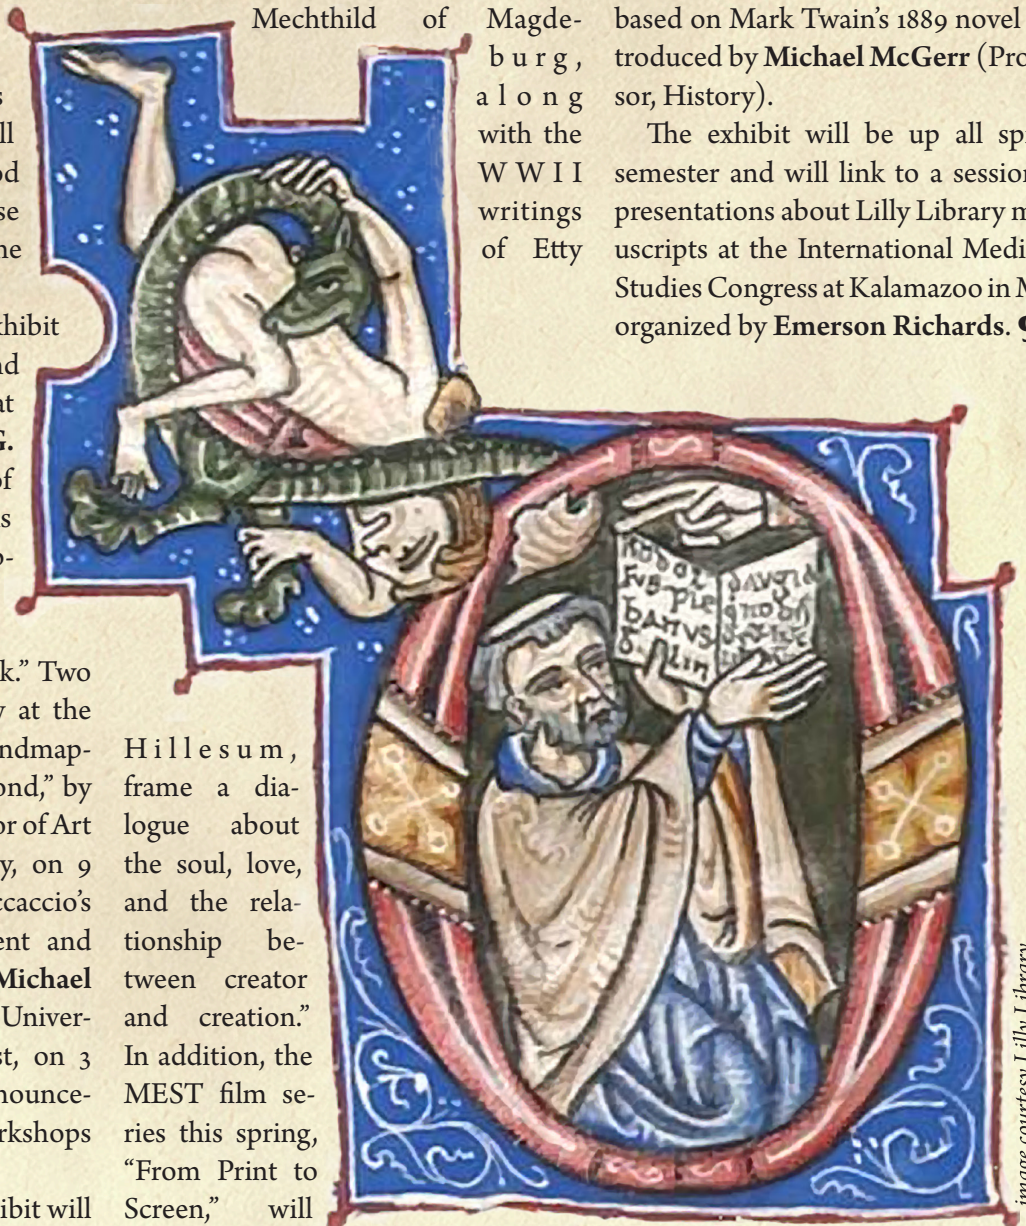 s
ll
od
se
ne
xhibit
nd
at
G.
of
s
o-
k.” Two
y at the
ndmap-
ond,” by
or of Art
y, on 9
ccaccio’s
ent and
Michael
Univer-
st, on 3
nounce-
rkshops
ibit will
Mechthild of Magde-
burg,
along
with the
WWII
writings
of Etty
Hillesum,
frame a dia-
logue about
the soul, love,
and the rela-
tionship be-
tween creator
and creation.”
In addition, the
MEST film se-
ries this spring,
“From Print to
Screen,” will
based on Mark Twain’s 1889 novel
troduced by Michael McGerr (Pro
sor, History).
The exhibit will be up all sp
semester and will link to a session
presentations about Lilly Library m
uscripts at the International Medi
Studies Congress at Kalamazoo in M
organized by Emerson Richards.
Rodol
fus·ple
banus
d. Lin
image courtesy Lilly Library